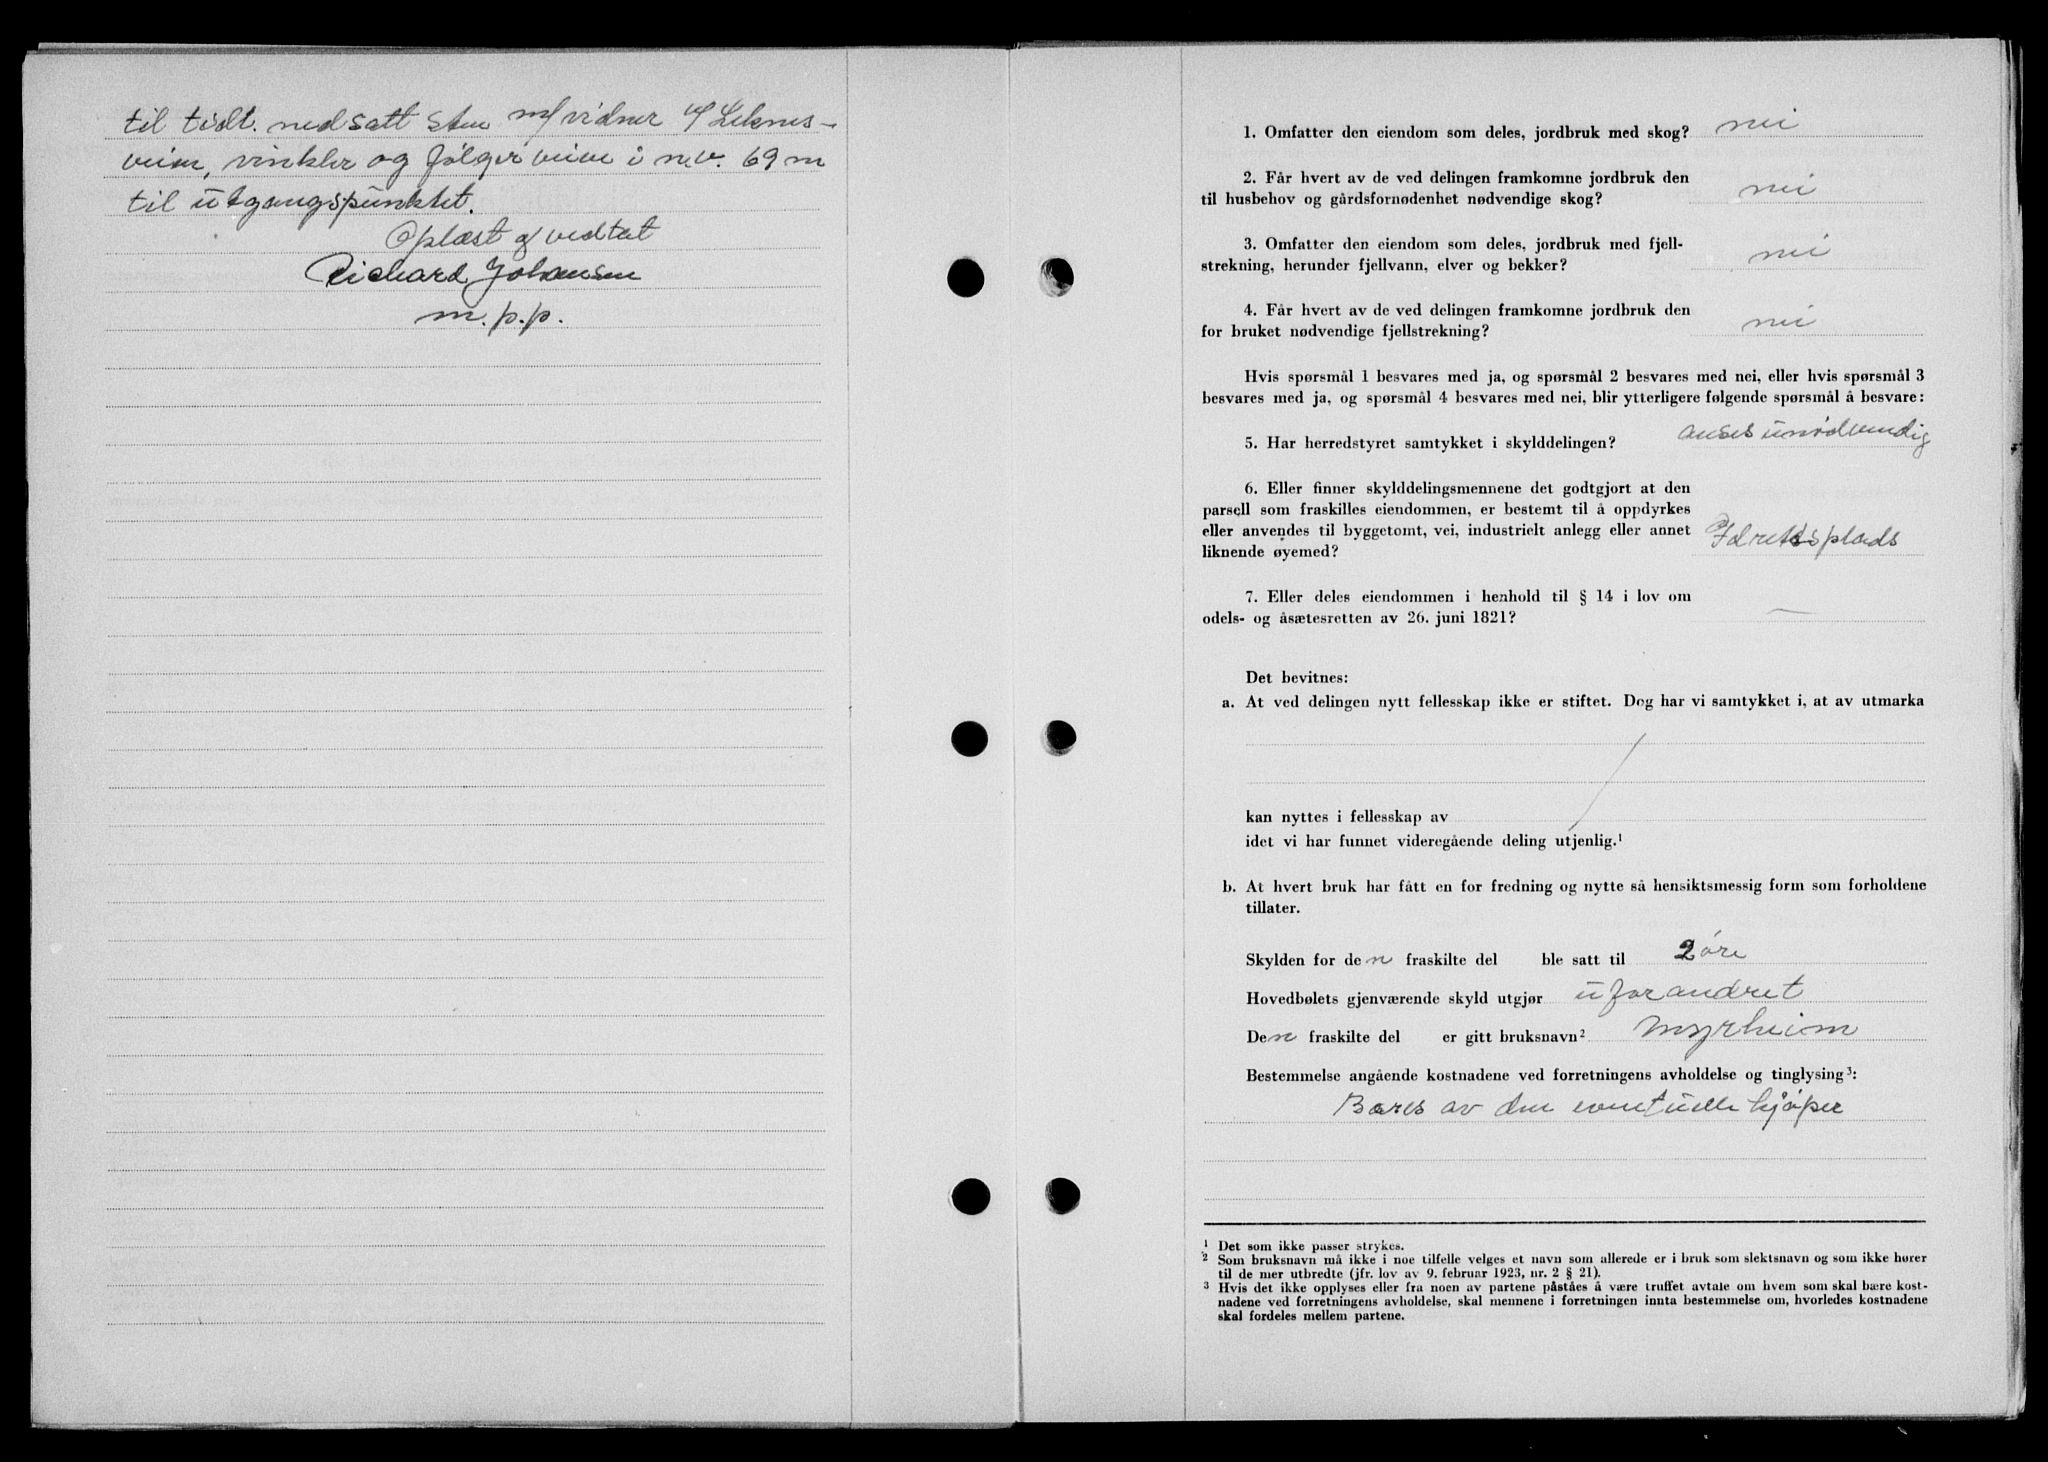 til tidt. nedsatt sten m/ vidner v/ Leknes-
veien, vinkler og følger veien i n.v. 69 m
til utgangspunktet.
Oplæst og vedtat
Richard Johansen
m.p.p.
1. Omfatter den eiendom som deles, jordbruk med skog? nei
2. Får hvert av de ved delingen framkomne jordbruk den
til husbehov og gårdsfornødenhet nødvendige skog? nei
3. Omfatter den eiendom som deles, jordbruk med fjell-
strekning, herunder fjellvann, elver og bekker? nei
4. Får hvert av de ved delingen framkomne jordbruk den
for bruket nødvendige fjellstrekning? nei
Hvis spørsmål 1 besvares med ja, og spørsmål 2 besvares med nei, eller hvis spørsmål 3
besvares med ja, og spørsmål 4 besvares med nei, blir ytterligere følgende spørsmål å besvare:
5. Har herredstyret samtykket i skylddelingen? anses unødvendig
6. Eller finner skylddelingsmennene det godtgjort at den
parsell som fraskilles eiendommen, er bestemt til å oppdyrkes
eller anvendes til byggetomt, vei, industrielt anlegg eller annet
liknende øyemed? Idrettsplads
7. Eller deles eiendommen i henhold til § 14 i lov om
odels- og åsætesretten av 26. juni 1821? —
Det bevitnes:
a. At ved delingen nytt fellesskap ikke er stiftet. Dog har vi samtykket i, at av utmarka
kan nyttes i fellesskap av
idet vi har funnet videregående deling utjenlig.¹
b. At hvert bruk har fått en for fredning og nytte så hensiktsmessig form som forholdene
tillater.
Skylden for den fraskilte del ble satt til 2 øre
Hovedbølets gjenværende skyld utgjør uforandret
Den fraskilte del er gitt bruksnavn² Myrheim
Bestemmelse angående kostnadene ved forretningens avholdelse og tinglysing³:
Bæres av den eventuelle kjøper
¹ Det som ikke passer strykes.
² Som bruksnavn må ikke i noe tilfelle velges et navn som allerede er i bruk som slektsnavn og som ikke hører
til de mer utbredte (jfr. lov av 9. februar 1923, nr. 2 § 21).
³ Hvis det ikke opplyses eller fra noen av partene påståes å være truffet avtale om hvem som skal bære kost-
nadene ved forretningens avholdelse, skal mennene i forretningen innta bestemmelse om, hvorledes kostnadene
skal fordeles mellem partene.